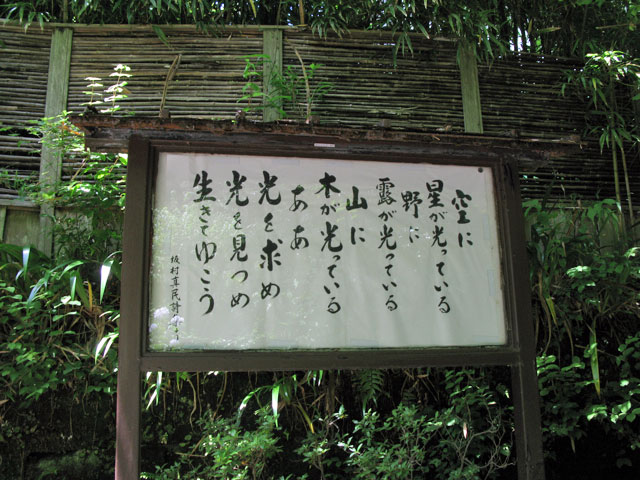 空に
星が光っている
野に
露が光っている
山に
木が光っている
ああ
光を求め
光を見つめ
生きてゆこう
坂村真民詩